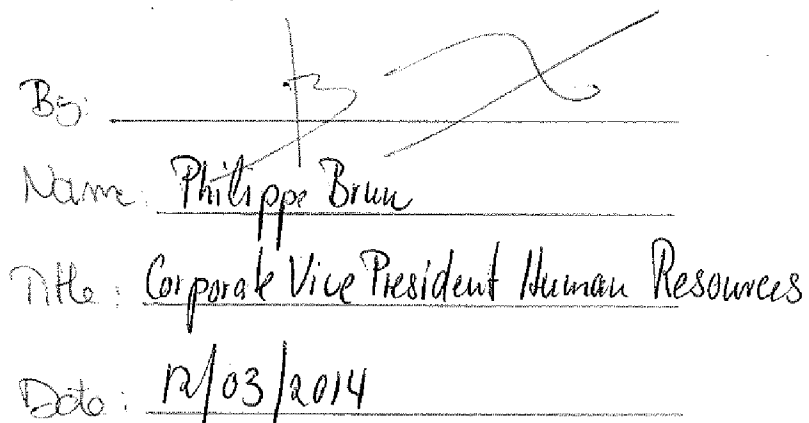 By:
Name: Philippe Brun
Title: Corporate Vice President Human Resources
Date: 12/03/2014